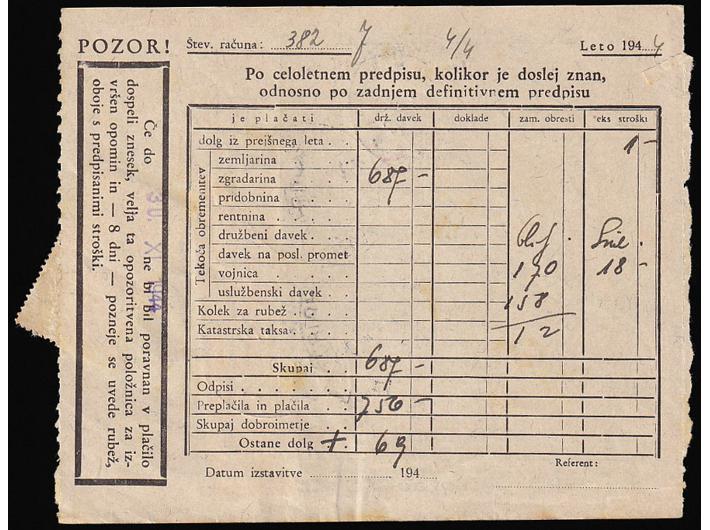 POZOR! Štev. računa: 382 4/4 Leto 1944
Po celoletnem predpisu, kolikor je doslej znan,
odnosno po zadnjem definitivnem predpisu
je plačati drž. davek doklade zam. obresti eks stroški
dolg iz prejšnega leta . . . 1 -
Tekoča obremenitev
zemljarina . . .
zgradarina . . . 687 -
pridobnina . . .
rentnina . . .
družbeni davek . .
davek na posl. promet
vojnica . . . 170 18 -
uslužbenski davek . . 158
Kolek za rubež . . . 12
Katastrska taksa . . .
Skupaj . . . 687 -
Odpisi . . . . . . . .
Preplačila in plačila . . 756 -
Skupaj dobroimetje .
Ostane dolg + 69
Datum izstavitve 194 Referent:
Če do 30. X. 1944 ne bi bil poravnan v plačilo
dospeli znesek, velja ta opozoritvena položnica za iz-
vršen opomin in — 8 dni — pozneje se uvede rubež,
oboje s predpisanimi stroški.